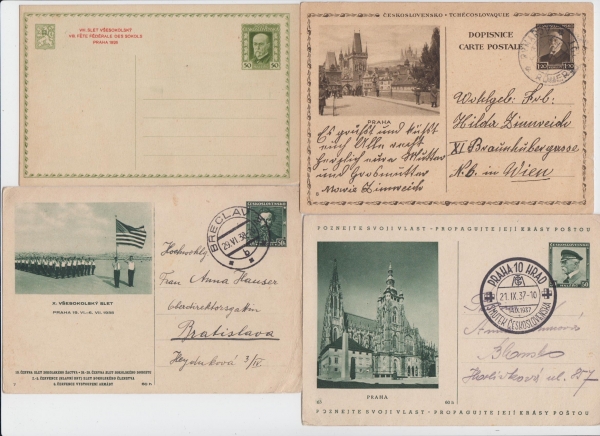 VIII. SLET VŠESOKOLSKÝ
VIII. FÊTE FÉDÉRALE DES SOKOLS
PRAHA 1926
50 50
ČESKOSLOVENSKO · TCHÉCOSLOVAQUIE
DOPISNICE
CARTE POSTALE
PRAHA
Es grüßt und küßt
euch Alle recht
herzlich eure Mutter
und Großmutter
Marie Zinnreich
Wohlgeb. Frb:
Hilda Zinnreich
XI Braunhubergasse
N.b. in Wien
X. VŠESOKOLSKÝ SLET
PRAHA 12. VI.-6. VII. 1938
BŘECLAV
29.VI.38
b
ČESKOSLOVENSKO
50
Hochwohlg
Frau Anna Hauser
Oberdirektorsgattin
Bratislava
Heydukova 3/IV.
POZNEJTE SVOJI VLAST · PROPAGUJTE JEJÍ KRÁSY POŠTOU
PRAHA
PRAHA 10 HRAD
21.IX.37-10
14.IX.1937
SMUTEK ČESKOSLOVENSKA
50
Blansko
POZNEJTE SVOJI VLAST · PROPAGUJTE JEJÍ KRÁSY POŠTOU